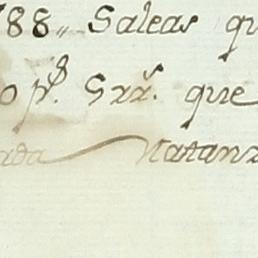 788,, Saleas qu
o p.s Srx.s que
ada Natanz